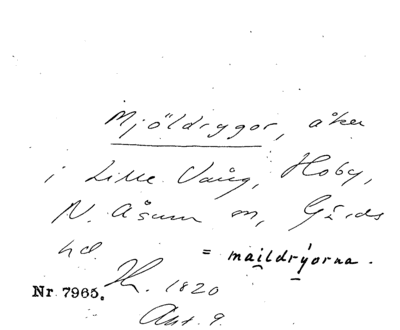 Mjöldrygor, åker
i Lille Vång, Hoby,
N. Åsum sn, Gärds
hd. = maildrýorna.
Nr 7965. H. 1820
Akt. 9.